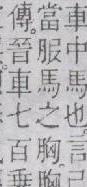 車中馬也。言己
當服馬之胸。胸
傳。晉車七百乗